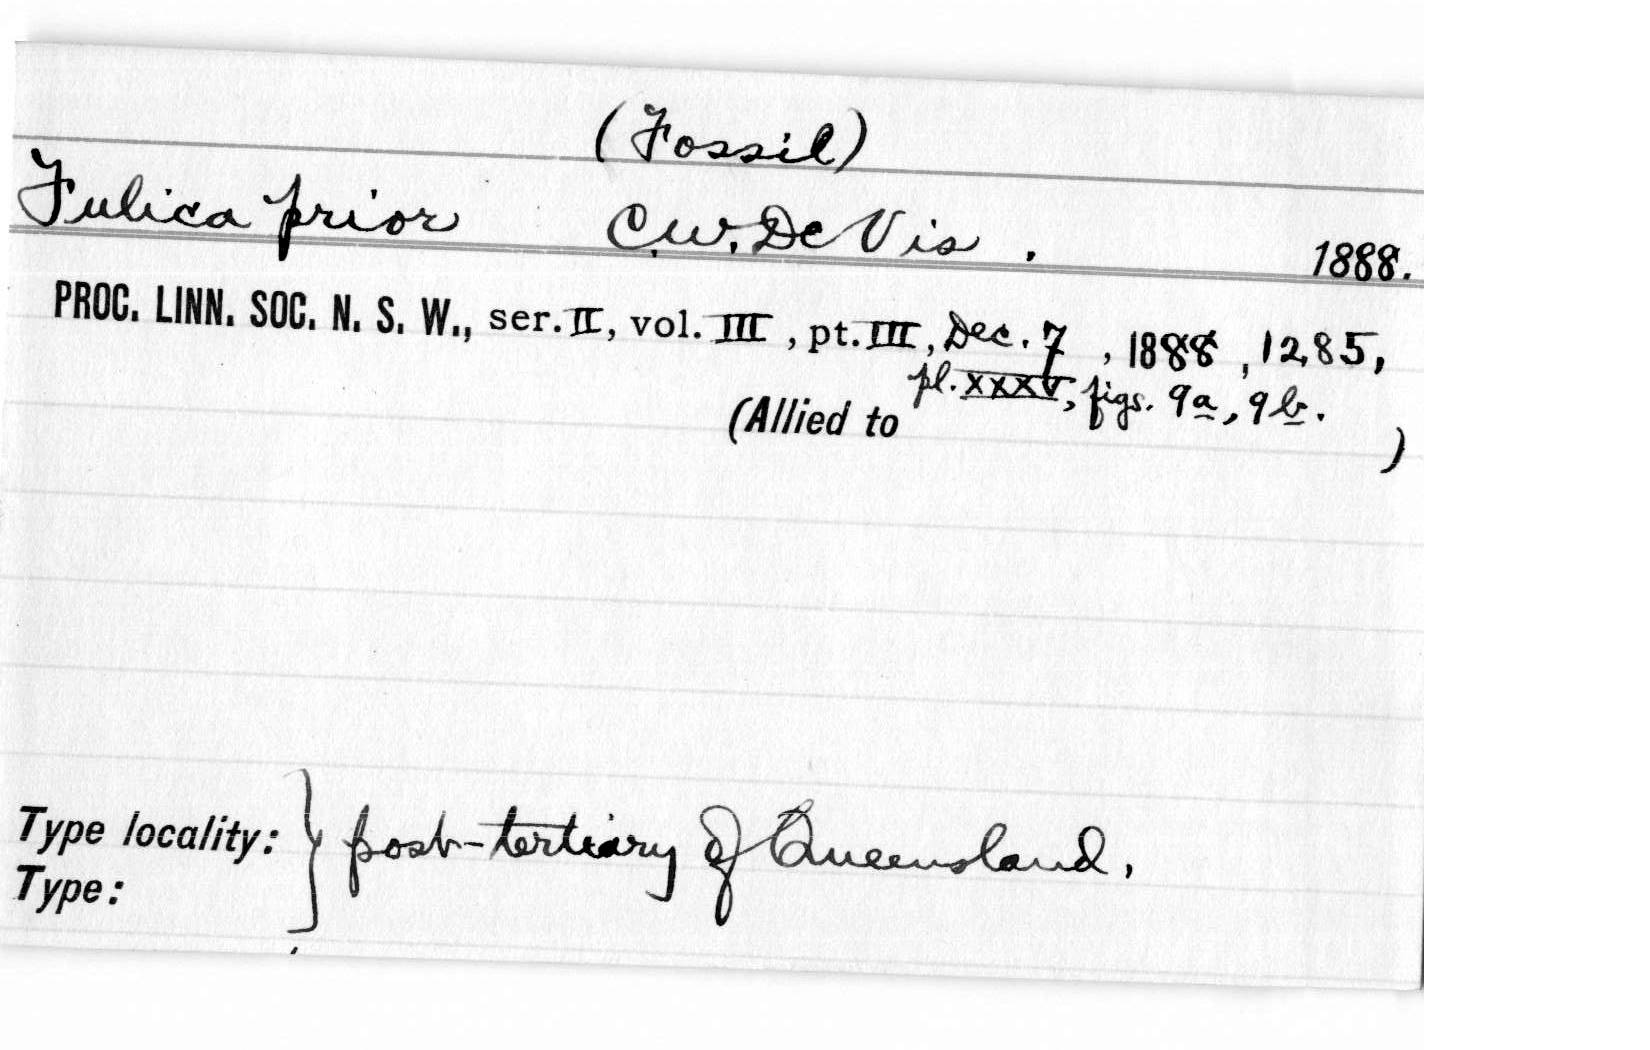 (Fossil)
Fulica prior C.W. De Vis. 1888.
PROC. LINN. SOC. N. S. W., ser. II, vol. III, pt. III, Dec. 7, 1888, 1285,
pl. XXXV, figs. 9a, 9b.
(Allied to )
Type locality: } post-tertiary of Queensland.
Type: